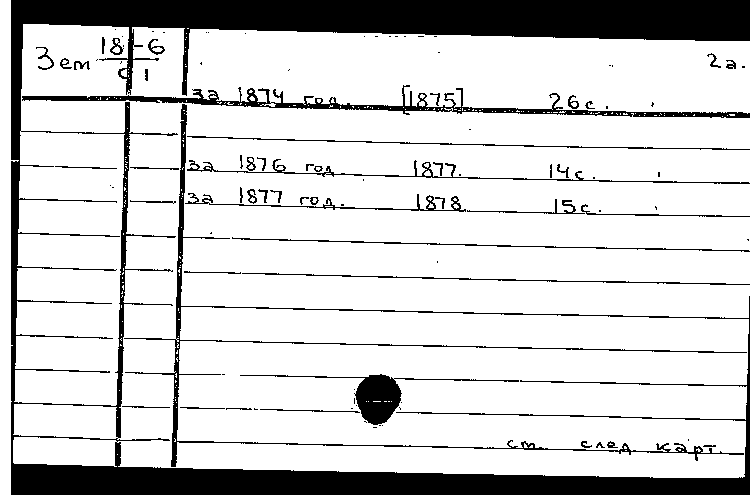 Зем 18-6 2а.
с 1
за 1874 год. [1875] 26с.
за 1876 год. 1877. 14с.
за 1877 год. 1878 15с.
см. след. карт.